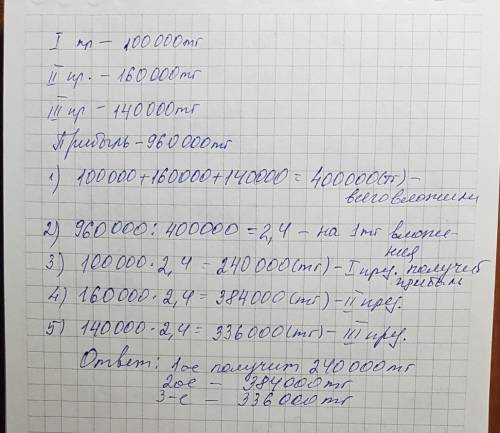 I пр – 100000тг
II пр. – 160000тг
III пр – 140000тг
Прибыль – 960000тг
1) 100000+160000+140000 = 400000(тг) –
всего вложили
2) 960000 : 400000 = 2,4 – на 1тг вложе-
ния
3) 100000 · 2,4 = 240000(тг) – I пред. получит
прибыль
4) 160000 · 2,4 = 384000(тг) – II пред.
5) 140000 · 2,4 = 336000(тг) – III пред.
Ответ: 1ое получит 240000тг
2ое – 384000тг
3-е – 336000тг